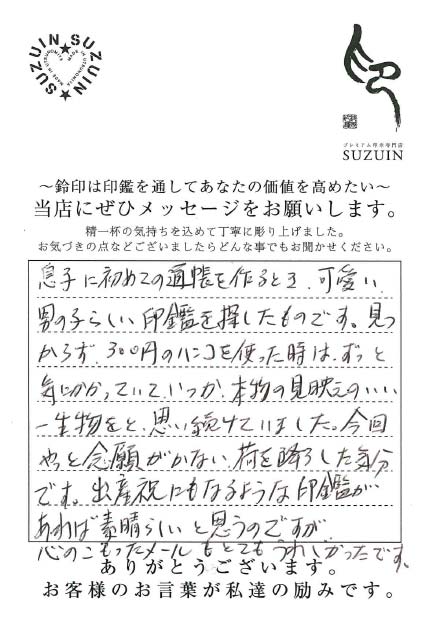 SUZUIN★SUZUIN★
MADE IN UTSUNOMIYA
プレミアム印章専門店
SUZUIN
～鈴印は印鑑を通してあなたの価値を高めたい～
当店にぜひメッセージをお願いします。
精一杯の気持ちを込めて丁寧に彫り上げました。
お気づきの点などございましたらどんな事でもお聞かせください。
息子に初めての通帳を作るとき、可愛い、
男の子らしい印鑑を探したものです。見つ
からず、300円のハンコを使った時は、ずっと
気にかかっていて、いつか、本物の見映えのいい
一生物をと、思い続けていました。今回
やっと念願がかない、荷を降ろした気分
です。出産祝にもなるような印鑑が
あれば素晴らしいと思うのですが、
心のこもったメールもとてもうれしかったです。
ありがとうございます。
お客様のお言葉が私達の励みです。